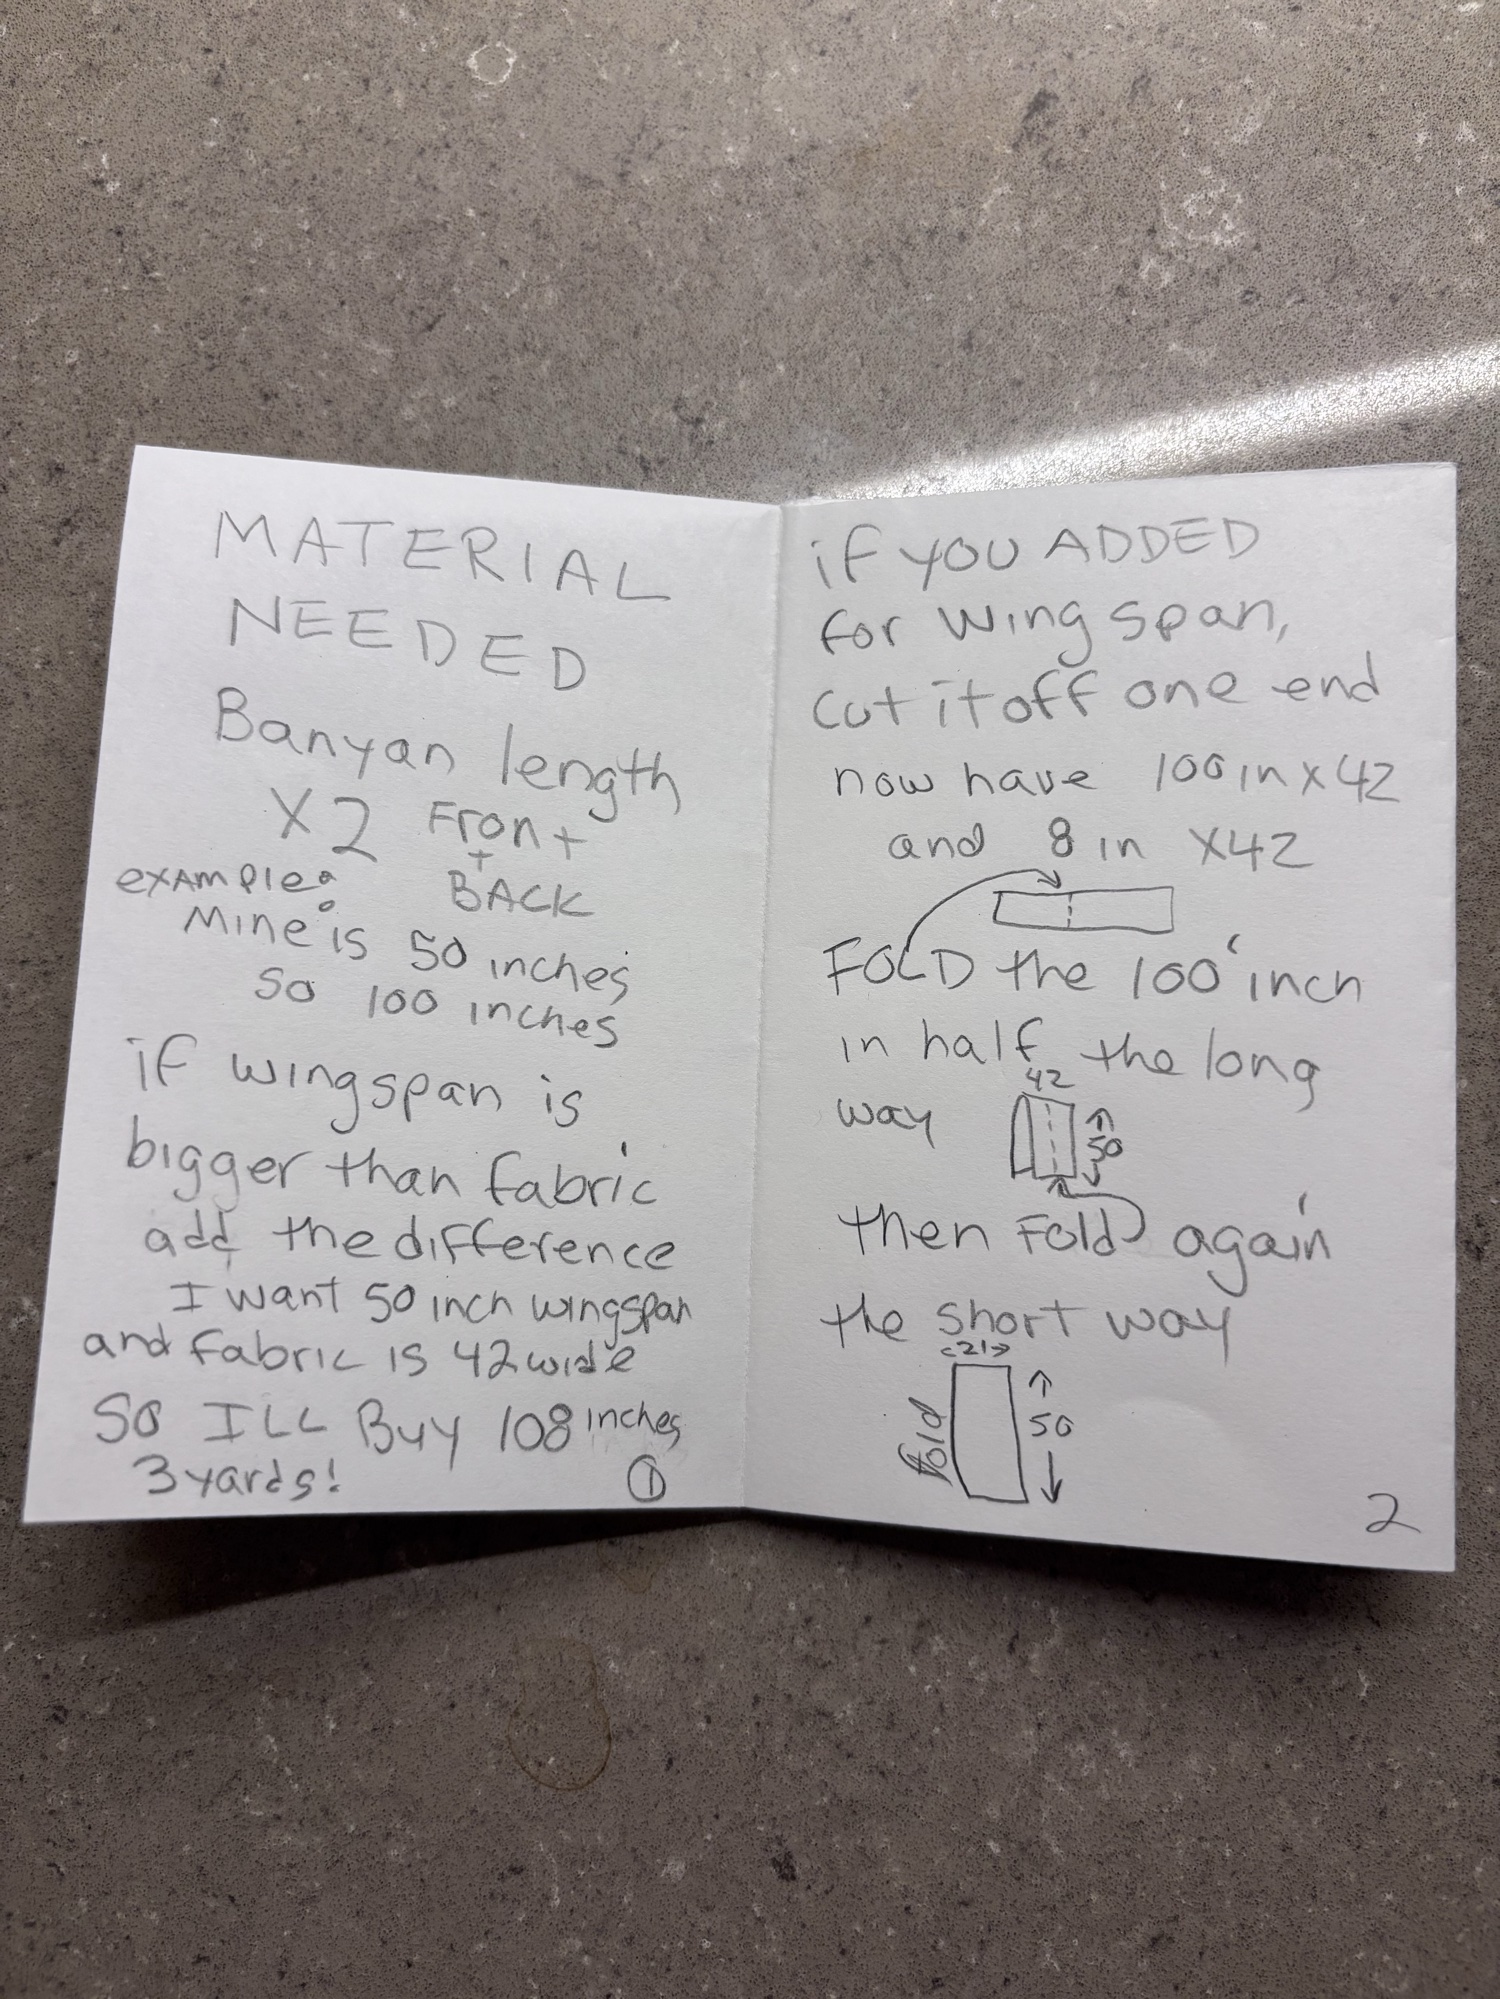 MATERIAL
NEEDED
Banyan length
X2 Front
+
BACK
example:
Mine is 50 inches
so 100 inches
if wingspan is
bigger than fabric
add the difference
I want 50 inch wingspan
and fabric is 42 wide
So ILL Buy 108 inches
3 yards!
1
if you ADDED
for wingspan,
cut it off one end
now have 100 in x 42
and 8 in x42
FOLD the 100 inch
in half the long
way
42
50
then Fold again
the short way
<21>
fold
50
2